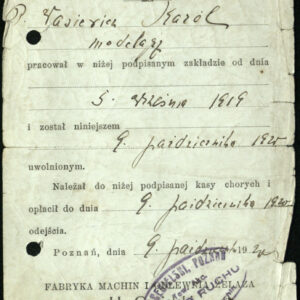 P. Karól
modelarz
pracował w niżej podpisanym zakładzie od dnia
5. Września 1919
i został niniejszem
9. października 1920
uwolnionym.
Należał do niżej podpisanej kasy chorych i
opłacił do dnia 9. października 1920
odejścia.
Poznań, dnia 9. paźdz 192
FABRYKA MACHIN I ODLEWNIA ŻELAZA